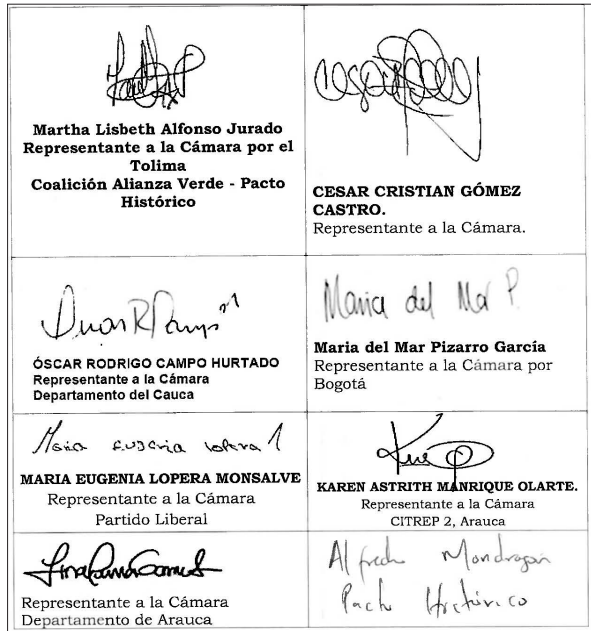 Martha Lisbeth Alfonso Jurado
Representante a la Cámara por el
Tolima
Coalición Alianza Verde - Pacto
Histórico
CESAR CRISTIAN GÓMEZ
CASTRO.
Representante a la Cámara.
ÓSCAR RODRIGO CAMPO HURTADO
Representante a la Cámara
Departamento del Cauca
Maria del Mar P.
Maria del Mar Pizarro García
Representante a la Cámara por
Bogotá
Maria Eugenia Lopera
MARIA EUGENIA LOPERA MONSALVE
Representante a la Cámara
Partido Liberal
KAREN ASTRITH MANRIQUE OLARTE.
Representante a la Cámara
CITREP 2, Arauca
Representante a la Cámara
Departamento de Arauca
Alfredo Mondragon
Pacto Histórico